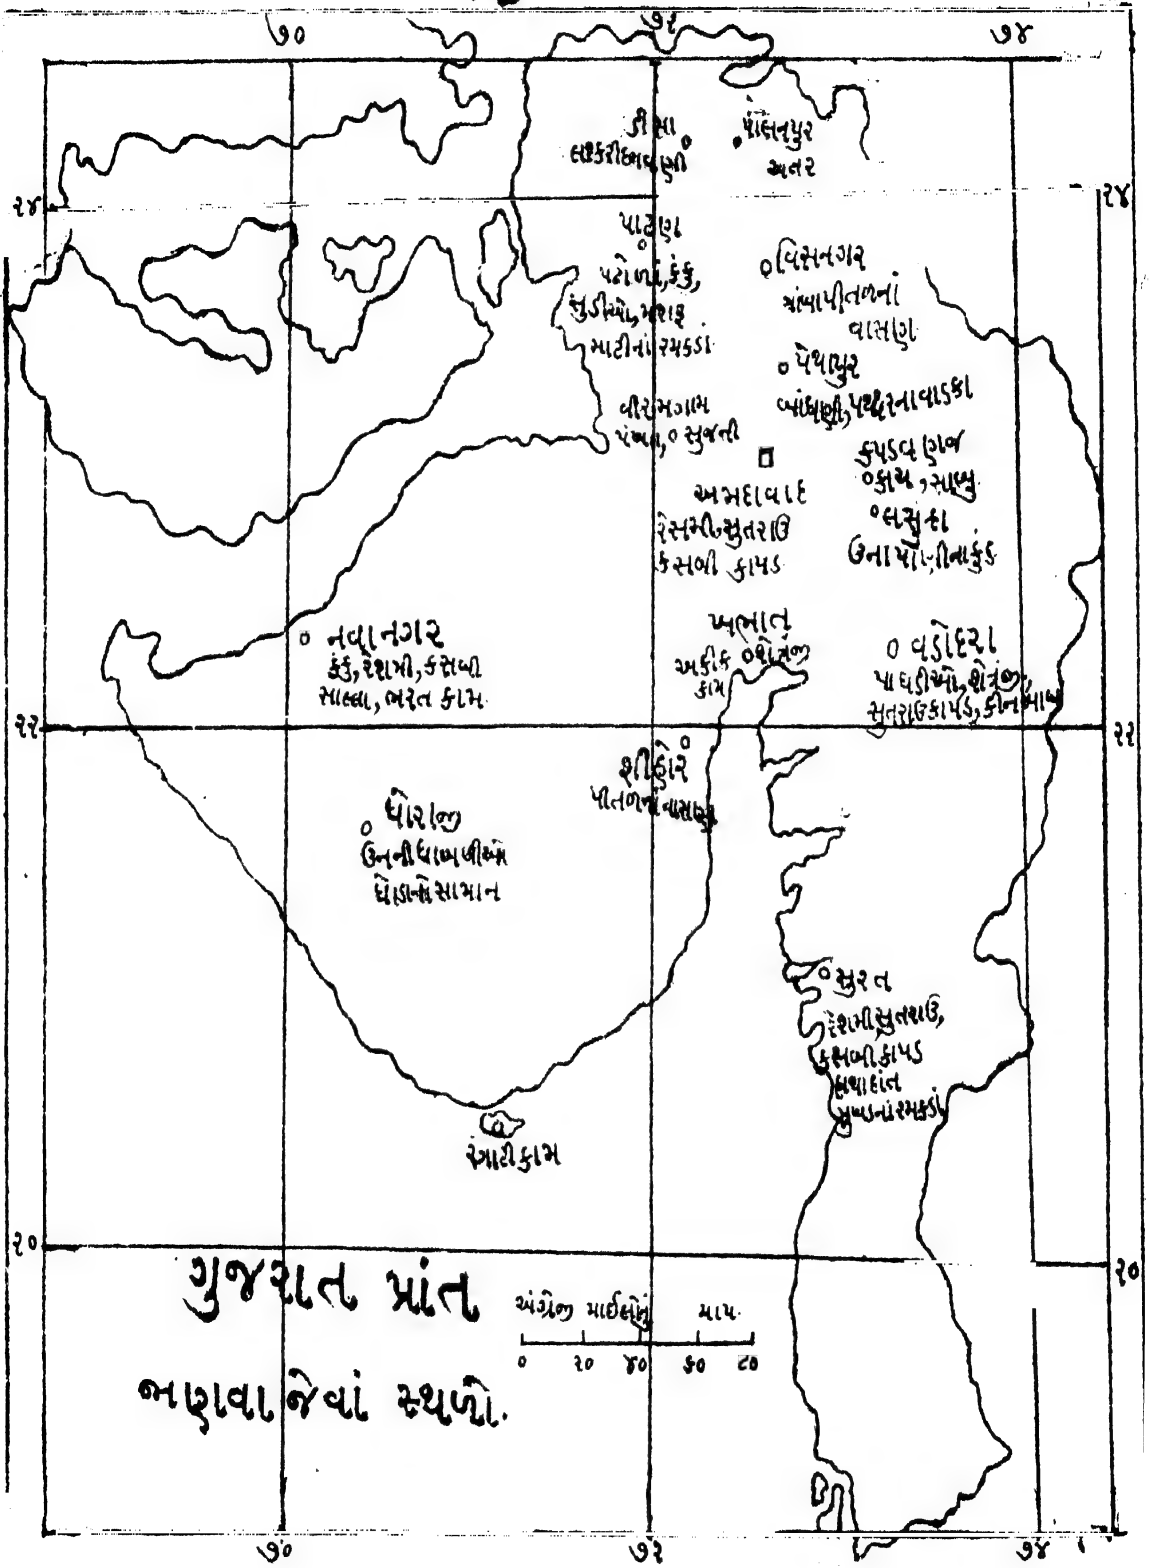 ૭૦ ૭૨ ૭૪
ડીસા
લશ્કરી છાવણી
પાલનપુર
અત્તર
૨૪ ૨૪
પાટણ
પટોળાં, કંકુ,
સુડીઓ, મશરૂ
માટીનાં રમકડાં
વિસનગર
ત્રાંબાપીતળનાં
વાસણ
પેથાપુર
બાંધણી, પથ્થરના વાડકા
વીરમગામ
સુજની
કપડવણજ
કાચ, સાબુ
લસુન્દ્રા
ઉના પાણીના કુંડ
અમદાવાદ
રેસમી, સુતરાઉ
કસબી કાપડ
નવાનગર
કંકુ, રેશમી, કસબી
સાલ્લા, ભરત કામ
ખંભાત
અકીક શેત્રંજી
કામ
વડોદરા
પાઘડીઓ, શેત્રંજી,
સુતરાઉ કાપડ, કીનખાબ
૨૨ ૨૨
શીહોર
પીતળનાં વાસણ
ધોરાજી
ઉનની ધાબળીઓ
ઘોડાનો સામાન
સુરત
રેશમી, સુતરાઉ,
કસબી કાપડ
હાથીદાંત
સુખડનાં રમકડાં
રંગાટી કામ
૨૦ ૨૦
ગુજરાત પ્રાંત
અંગ્રેજી માઈલોનું માપ
૦ ૨૦ ૪૦ ૬૦ ૮૦
જાણવા જેવાં સ્થળો.
૭૦ ૭૨ ૭૪